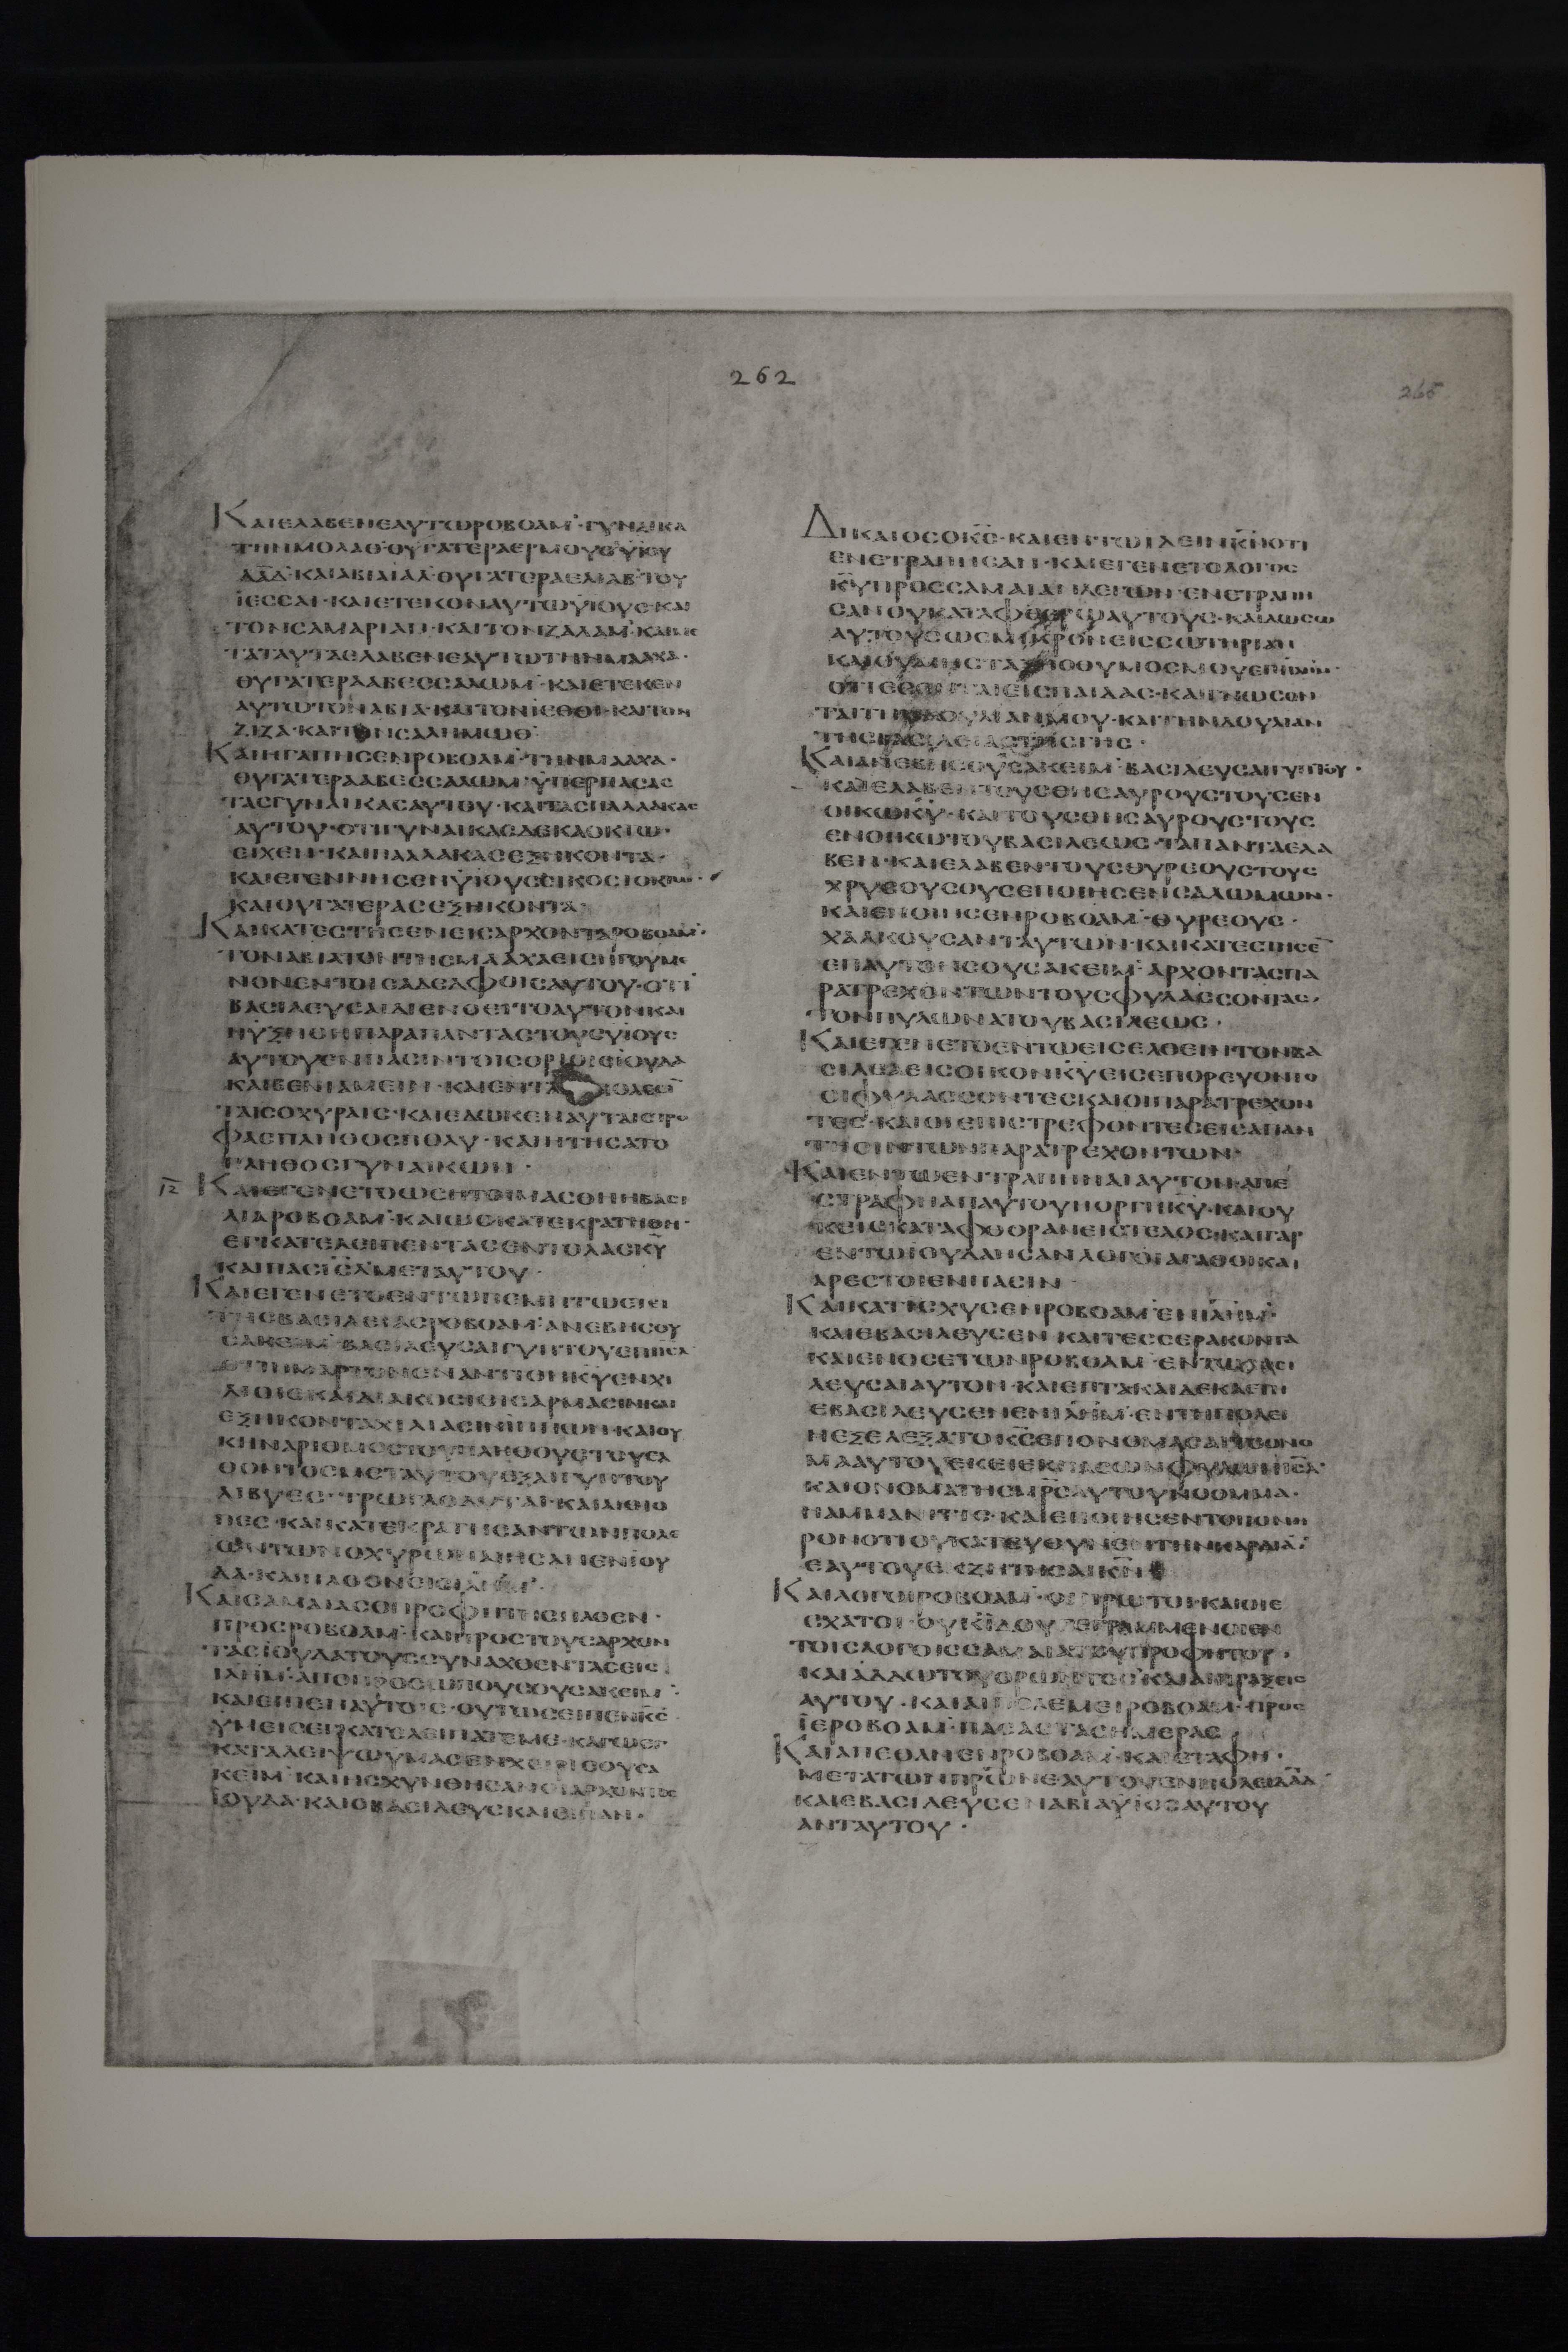 262
265
ΚΑΙΕΛΑΒΕΝΕΑΥΤΩΡΟΒΟΑΜ·ΓΥΝΑΙΚΑ
ΤΗΝΜΟΛΑΘ·ΘΥΓΑΤΕΡΑΕΡΜΟΥΘΫΙΟΥ
ΔΑΔ·ΚΑΙΑΒΙΑΙΑΛ·ΘΥΓΑΤΕΡΑΕΛΙΑΒ·ΤΟΥ
ΪΕΣΣΑΙ·ΚΑΙΕΤΕΚΟΝΑΥΤΩΫΙΟΥΣ·ΚΑΙ
ΤΟΝΣΑΜΑΡΙΑΝ·ΚΑΙΤΟΝΖΑΛΑΜ·ΚΑΙΜΕ
ΤΑΤΑΥΤΑΕΛΑΒΕΝΕΑΥΤΩΤΗΝΜΑΑΧΑ·
ΘΥΓΑΤΕΡΑΑΒΕΣΣΑΛΩΜ·ΚΑΙΕΤΕΚΕΝ
ΑΥΤΩΤΟΝΑΒΙΑ·ΚΑΙΤΟΝΪΕΘΘΙ·ΚΑΙΤΟΝ
ΖΙΖΑ·ΚΑΙΤΟΝΣΑΛΗΜΩΘ·
ΚΑΙΗΓΑΠΗΣΕΝΡΟΒΟΑΜ·ΤΗΝΜΑΑΧΑ·
ΘΥΓΑΤΕΡΑΑΒΕΣΣΑΛΩΜ·ΫΠΕΡΠΑΣΑΣ
ΤΑΣΓΥΝΑΙΚΑΣΑΥΤΟΥ·ΚΑΙΤΑΣΠΑΛΛΑΚΑΣ
ΑΥΤΟΥ·ΟΤΙΓΥΝΑΙΚΑΣΔΕΚΑΟΚΤΩ·
ΕΙΧΕΝ·ΚΑΙΠΑΛΛΑΚΑΣΕΞΗΚΟΝΤΑ·
ΚΑΙΕΓΕΝΝΗΣΕΝΫΙΟΥΣΕΙΚΟΣΙΟΚΤΩ·
ΚΑΙΘΥΓΑΤΕΡΑΣΕΞΗΚΟΝΤΑ·
ΚΑΙΚΑΤΕΣΤΗΣΕΝΕΙΣΑΡΧΟΝΤΑΡΟΒΟΑΜ·
ΤΟΝΑΒΙΑΤΟΝΤΗΣΜΑΑΧΑΕΙΣΗΓΟΥΜΕ
ΝΟΝΕΝΤΟΙΣΑΔΕΛΦΟΙΣΑΥΤΟΥ·ΟΤΙ
ΒΑΣΙΛΕΥΣΑΙΔΙΕΝΟΕΙΤΟΑΥΤΟΝΚΑΙ
ΗΥΞΗΘΗΠΑΡΑΠΑΝΤΑΣΤΟΥΣΥΪΟΥΣ
ΑΥΤΟΥΕΝΠΑΣΙΝΤΟΙΣΟΡΙΟΙΣΪΟΥΔΑ
ΚΑΙΒΕΝΙΑΜΕΙΝ·ΚΑΙΕΝΤΑ ΠΟΛΕΣΙ
ΤΑΙΣΟΧΥΡΑΙΣ·ΚΑΙΕΔΩΚΕΝΑΥΤΑΙΣΤΡΟ
ΦΑΣΠΛΗΘΟΣΠΟΛΥ·ΚΑΙΗΤΗΣΑΤΟ
ΠΛΗΘΟΣΓΥΝΑΙΚΩΝ·
12 ΚΑΙΕΓΕΝΕΤΟΩΣΗΤΟΙΜΑΣΘΗΗΒΑΣΙ
ΛΙΑΡΟΒΟΑΜ·ΚΑΙΩΣΚΑΤΕΚΡΑΤΗΘΗ·
ΕΓΚΑΤΕΛΕΙΠΕΝΤΑΣΕΝΤΟΛΑΣΚΥ
ΚΑΙΠΑΣΙΣΛΜΕΤΑΥΤΟΥ·
ΚΑΙΕΓΕΝΕΤΟΕΝΤΩΠΕΜΠΤΩΕΤΕΙ
ΤΗΣΒΑΣΙΛΕΙΑΣΡΟΒΟΑΜ·ΑΝΕΒΗΣΟΥ
ΣΑΚΕΙΜ·ΒΑΣΙΛΕΥΣΑΙΓΥΠΤΟΥΕΠΙΙΗΛ
ΟΤΙΗΜΑΡΤΟΝΕΝΑΝΤΙΟΝΚΥΕΝΧΙ
ΛΙΟΙΣΚΑΙΔΙΑΚΟΣΙΟΙΣΑΡΜΑΣΙΝΚΑΙ
ΕΞΗΚΟΝΤΑΧΙΛΙΑΣΙΝΙΠΠΩΝ·ΚΑΙΟΥ
ΚΗΝΑΡΙΘΜΟΣΤΟΥΠΛΗΘΟΥΣΤΟΥΕΛ
ΘΟΝΤΟΣΜΕΤΑΥΤΟΥΕΞΑΙΓΥΠΤΟΥ
ΛΙΒΥΕΣ·ΤΡΩΓΛΟΔΥΤΑΙ·ΚΑΙΑΙΘΙΟ
ΠΕΣ·ΚΑΙΚΑΤΕΚΡΑΤΗΣΑΝΤΩΝΠΟΛΕ
ΩΝΤΩΝΟΧΥΡΩΜΑΙΗΣΑΝΕΝΪΟΥ
ΔΑ·ΚΑΙΗΛΘΟΝΕΙΣ
ΚΑΙΣΑΜΑΙΑΣΟΠΡΟΦΗΤΗΣΗΛΘΕΝ·
ΠΡΟΣΡΟΒΟΑΜ·ΚΑΙΠΡΟΣΤΟΥΣΑΡΧΟΝ
ΤΑΣΪΟΥΔΑΤΟΥΣΣΥΝΑΧΘΕΝΤΑΣΕΙΣ
ΙΛΗΜ·ΑΠΟΠΡΟΣΩΠΟΥΣΟΥΣΑΚΕΙΜ·
ΚΑΙΕΙΠΕΝΑΥΤΟΙΣ·ΟΥΤΩΣΕΙΠΕΝΚΣ·
ΫΜΕΙΣΕΓΚΑΤΕΛΕΙΠΑΤΕΜΕ·ΚΑΓΩΕΓ
ΚΑΤΑΛΕΙΨΩΥΜΑΣΕΝΧΕΙΡΙΣΟΥΣΑ
ΚΕΙΜ·ΚΑΙΗΣΧΥΝΘΗΣΑΝΟΙΑΡΧΟΝΤΕΣ
ΪΟΥΔΑ·ΚΑΙΟΒΑΣΙΛΕΥΣΚΑΙΕΙΠΑΝ·
ΔΙΚΑΙΟΣΟΚΣ·ΚΑΙΕΝΤΩΙΔΕΙΝΚΝΟΤΙ
ΕΝΕΤΡΑΠΗΣΑΝ·ΚΑΙΕΓΕΝΕΤΟΛΟΓΟΣ
ΚΥΠΡΟΣΣΑΜΑΙΑΝΛΕΓΩΝ·ΕΝΕΤΡΑΠΗ
ΣΑΝΟΥΚΑΤΑΦΘΕΡΩΑΥΤΟΥΣ·ΚΑΙΔΩΣΩ
ΑΥΤΟΥΣΩΣΜΙΚΡΟΝΕΙΣΣΩΤΗΡΙΑΝ
ΚΑΙΟΥΜΗΣΤΑΞΗΟΘΥΜΟΣΜΟΥΕΠΙΙΛΗΜ·
ΟΤΙΕΣΟΝΤΑΙΕΙΣΠΑΙΔΑΣ·ΚΑΙΓΝΩΣΟΝ
ΤΑΙΤΗΝΔΟΥΛΙΑΝΜΟΥ·ΚΑΙΤΗΝΔΟΥΛΙΑΝ
ΤΗΣΒΑΣΙΛΕΙΑΣΤΗΣΓΗΣ·
ΚΑΙΑΝΕΒΗΣΟΥΣΑΚΕΙΜ·ΒΑΣΙΛΕΥΣΑΙΓΥΠΤΟΥ·
ΚΑΙΕΛΑΒΕΝΤΟΥΣΘΗΣΑΥΡΟΥΣΤΟΥΣΕΝ
ΟΙΚΩΚΥ·ΚΑΙΤΟΥΣΘΗΣΑΥΡΟΥΣΤΟΥΣ
ΕΝΟΙΚΩΤΟΥΒΑΣΙΛΕΩΣ·ΤΑΠΑΝΤΑΕΛΑ
ΒΕΝ·ΚΑΙΕΛΑΒΕΝΤΟΥΣΘΥΡΕΟΥΣΤΟΥΣ
ΧΡΥΣΟΥΣΟΥΣΕΠΟΙΗΣΕΝΣΑΛΩΜΩΝ·
ΚΑΙΕΠΟΙΗΣΕΝΡΟΒΟΑΜ·ΘΥΡΕΟΥΣ·
ΧΑΛΚΟΥΣΑΝΤΑΥΤΩΝ·ΚΑΙΚΑΤΕΣΤΗΣΕ
ΕΠΑΥΤΟΝΣΟΥΣΑΚΕΙΜ·ΑΡΧΟΝΤΑΣΠΑ
ΡΑΤΡΕΧΟΝΤΩΝΤΟΥΣΦΥΛΑΣΣΟΝΤΑΣ·
ΤΟΝΠΥΛΩΝΑΤΟΥΒΑΣΙΛΕΩΣ·
ΚΑΙΕΓΕΝΕΤΟΕΝΤΩΕΙΣΕΛΘΕΙΝΤΟΝΒΑ
ΣΙΛΕΑΕΙΣΟΙΚΟΝΚΥΕΙΣΕΠΟΡΕΥΟΝΤΟ
ΟΙΦΥΛΑΣΣΟΝΤΕΣΚΑΙΟΙΠΑΡΑΤΡΕΧΟΝ
ΤΕΣ·ΚΑΙΟΙΕΠΙΣΤΡΕΦΟΝΤΕΣΕΙΣΑΠΑΝ
ΤΗΣΙΝΤΩΝΠΑΡΑΤΡΕΧΟΝΤΩΝ·
ΚΑΙΕΝΤΩΕΝΤΡΑΠΗΝΑΙΑΥΤΟΝ·ΑΠΕ
ΣΤΡΑΦΗΑΠΑΥΤΟΥΗΟΡΓΗΚΥ·ΚΑΙΟΥ
ΚΕΙΣΚΑΤΑΦΘΟΡΑΝΕΙΣΤΕΛΟΣ·ΚΑΙΓΑΡ
ΕΝΤΩΙΟΥΔΑΗΣΑΝΛΟΓΟΙΑΓΑΘΟΙΚΑΙ
ΑΡΕΣΤΟΙΕΝΠΑΣΙΝ·
ΚΑΙΚΑΤΙΣΧΥΣΕΝΡΟΒΟΑΜ·ΕΝΙΛΗΜ·
ΚΑΙΕΒΑΣΙΛΕΥΣΕΝ·ΚΑΙΤΕΣΣΕΡΑΚΟΝΤΑ
ΚΑΙΕΝΟΣΕΤΩΝΡΟΒΟΑΜ·ΕΝΤΩΒΑΣΙ
ΛΕΥΣΑΙΑΥΤΟΝ·ΚΑΙΕΠΤΑΚΑΙΔΕΚΑΕΤΗ
ΕΒΑΣΙΛΕΥΣΕΝΕΝΙΛΗΜ·ΕΝΤΗΠΟΛΕΙ
ΗΕΞΕΛΕΞΑΤΟΚΣΕΠΟΝΟΜΑΣΑΙΤΟΟΝΟ
ΜΑΑΥΤΟΥΕΚΕΙΕΚΠΑΣΩΝΦΥΛΩΝΙΗΛ·
ΚΑΙΟΝΟΜΑΤΗΣΜΡΣΑΥΤΟΥΝΟΟΜΜΑ·
ΗΑΜΜΑΝΙΤΙΣ·ΚΑΙΕΠΟΙΗΣΕΝΤΟΠΟΝΗ
ΡΟΝΟΤΙΟΥΚΑΤΕΥΘΥΝΕΝΤΗΝΚΑΡΔΙΑ·
ΕΑΥΤΟΥΕΚΖΗΤΗΣΑΙΚΝ
ΚΑΙΛΟΓΟΙΡΟΒΟΑΜ·ΟΙΠΡΩΤΟΙ·ΚΑΙΟΙΕ
ΣΧΑΤΟΙ·ΟΥΚΪΔΟΥΓΕΓΡΑΜΜΕΝΟΙΕΝ
ΤΟΙΣΛΟΓΟΙΣΣΑΜΑΙΑΤΟΥΠΡΟΦΗΤΟΥ·
ΚΑΙΑΔΔΩΤΟΥΟΡΩΝΤΟΣ·ΚΑΙΑΙΠΡΑΞΕΙΣ
ΑΥΤΟΥ·ΚΑΙΕΠΟΛΕΜΕΙΡΟΒΟΑΜ·ΠΡΟΣ
ΪΕΡΟΒΟΑΜ·ΠΑΣΑΣΤΑΣΗΜΕΡΑΣ
ΚΑΙΑΠΕΘΑΝΕΝΡΟΒΟΑΜ·ΚΑΙΕΤΑΦΗ·
ΜΕΤΑΤΩΝΠΡΩΝΕΑΥΤΟΥΕΝΠΟΛΕΙΔΑΔ·
ΚΑΙΕΒΑΣΙΛΕΥΣΕΝΑΒΙΑΫΙΟΣΑΥΤΟΥ
ΑΝΤΑΥΤΟΥ·